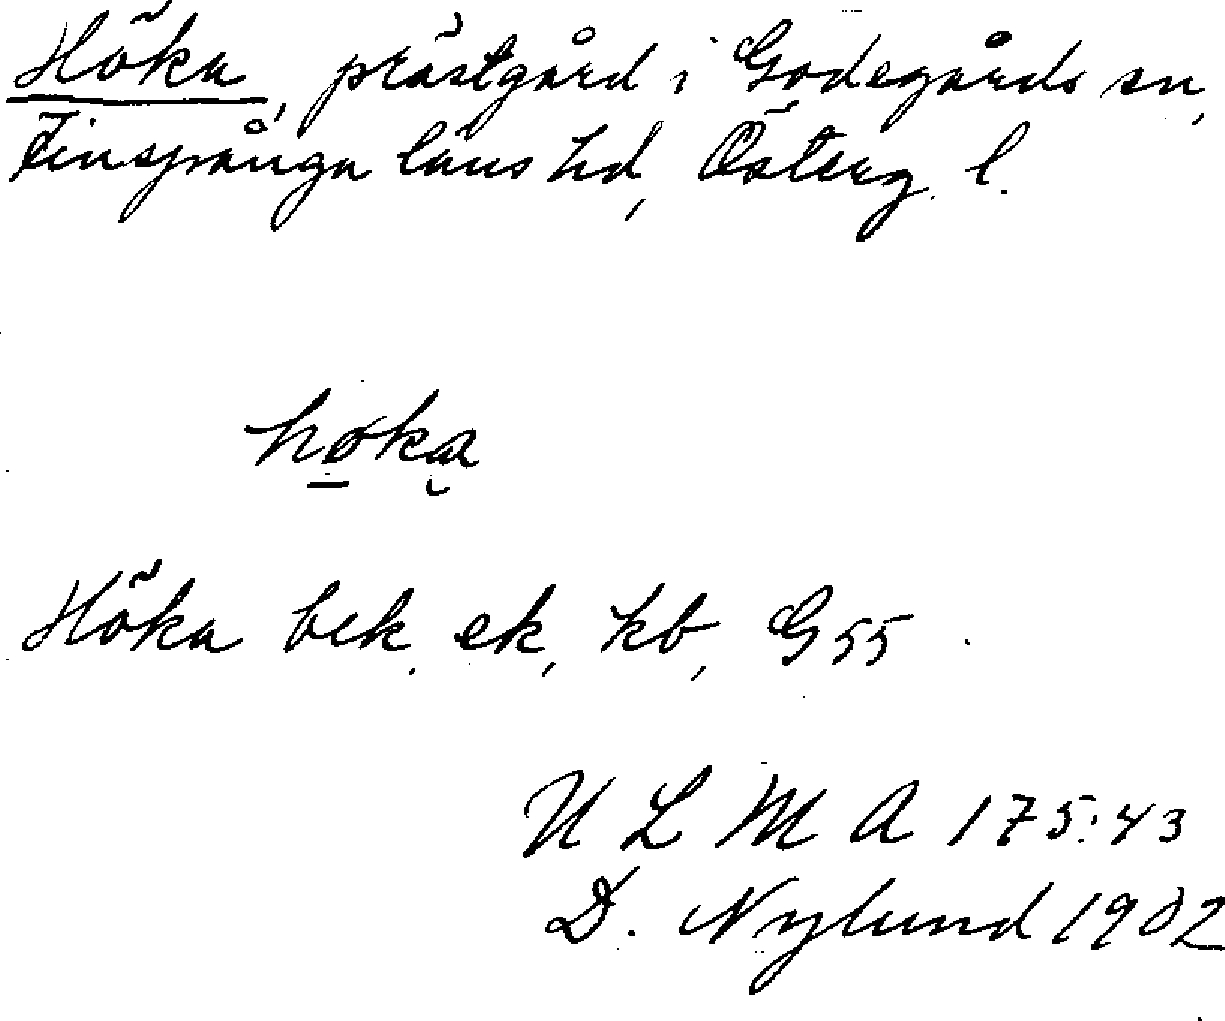 Höka, prästgård i Godegårds sn,
Finspånga läns hd, Österg. l.
høka
Höka bek. ek, kb, G 55
U L M A 175:43
D. Nylund 1902